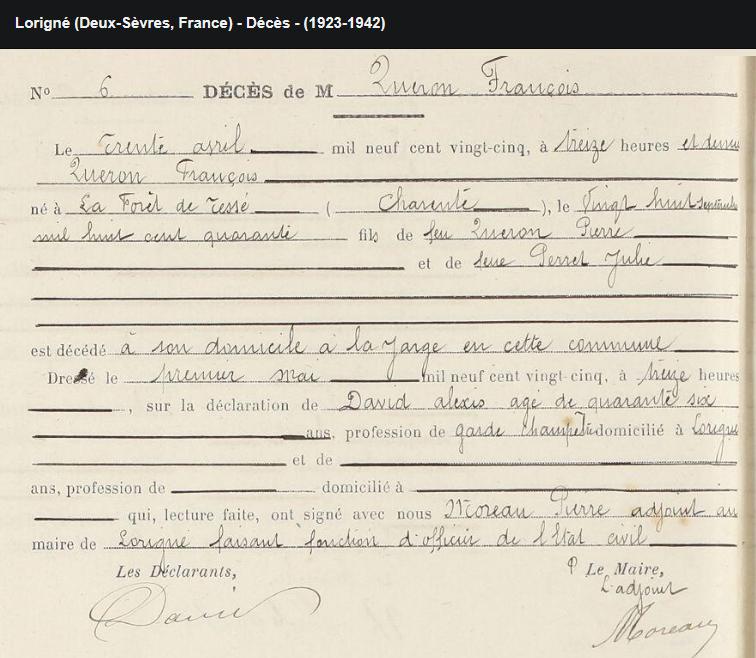 Lorigné (Deux-Sèvres, France) - Décès - (1923-1942)
Nº 6 DÉCÈS de M Queron François
Le trente avril mil neuf cent vingt-cinq, à treize heures et demie
Queron François
né à La Forêt de Tessé ( Charente ), le vingt huit septembre
mil huit cent quarante fils de feu Queron Pierre
et de feue Perret Julie
est décédé à son domicile à la Jarge en cette commune
Dressé le premier mai mil neuf cent vingt-cinq, à treize heures
, sur la déclaration de David alexis agé de quarante six
ans, profession de garde champêtre domicilié à Lorigné
et de
ans, profession de domicilié à
qui, lecture faite, ont signé avec nous Moreau Pierre adjoint au
maire de Lorigné faisant fonction d'officier de l'Etat civil
Les Déclarants, P Le Maire,
L'adjoint
David Moreau